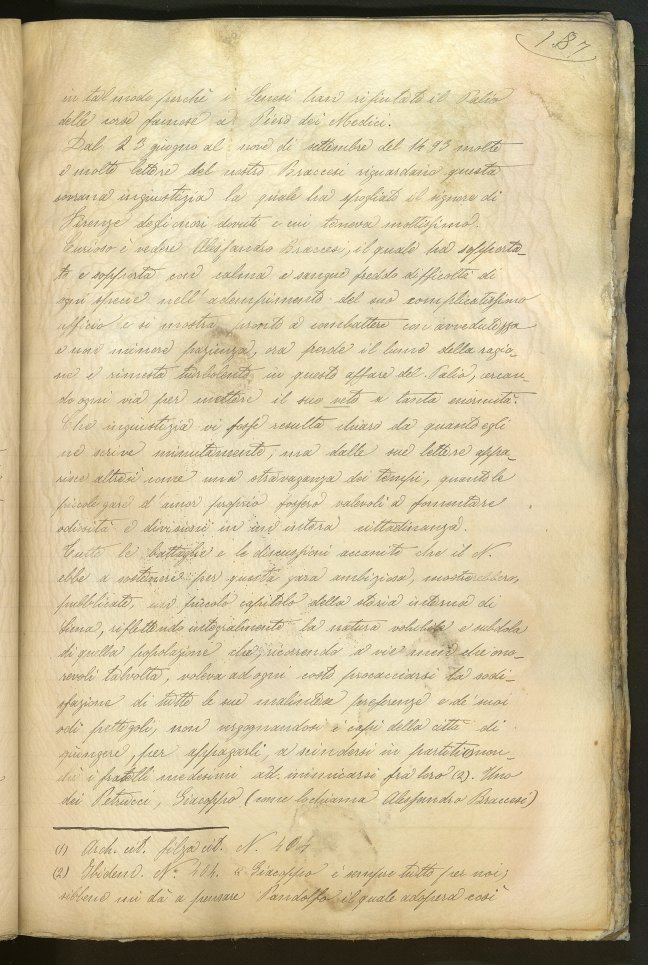 187
in tal modo perchè i Senesi han rifiutato il Palio
delle corse famose a Piero dei Medici.
Dal 23 giugno al nove di settembre del 1493 molte
e molte lettere del nostro Braccesi riguardano questa
sovrana ingiustizia la quale ha spogliato il signore di
Firenze degli onori dovuti e cui teneva moltissimo.
Curioso è vedere Alessandro Braccesi, il quale ha sopporta-
to e sopporta con calma e sangue freddo difficoltà di
ogni specie nell'adempimento del suo complicatissimo
ufficio e si mostra pronto a combattere con avvedutezza
e non minore pazienza, ora perde il lume della ragio-
ne e rimesta turbolento in questo affare del Palio, cercan-
do ogni via per mettere il suo veto a tanta enormità.
Che ingiustizia vi fosse resulta chiaro da quanto egli
ne scrive minutamente, ma dalle sue lettere appa-
risce altresì come una stravaganza dei tempi, quanto le
piccole gare d'amor proprio fossero valevoli a fomentare
odiosità e divisioni in una intera cittadinanza.
Tutte le battaglie e le discussioni accanite che il N.
ebbe a sostenere per questa gara ambiziosa, mostrerebbero,
pubblicate, un piccolo capitolo della storia interna di
Siena, riflettendo integralmente la natura volubile e subdola
di quella popolazione che, ricorrendo a vie meno che ono-
revoli talvolta, voleva ad ogni costo procacciarsi la sodi-
sfazione di tutte le sue malintese preferenze e de' suoi
odi pettegoli, non vergognandosi i capi della città di
giungere, per appagarli, a scindersi in partiti con-
di i fratelli medesimi ad inimicarsi fra loro (2). Uno
dei Petrucci, Giacoppo (come lo chiama Alessandro Braccesi)
(1) Arch. cit. filza cit. N. 404
(2) Ibidem. N.° 404. "Giacoppo è sempre tutto per noi;
sebbene mi dà a pensare Pandolfo il quale adopera così